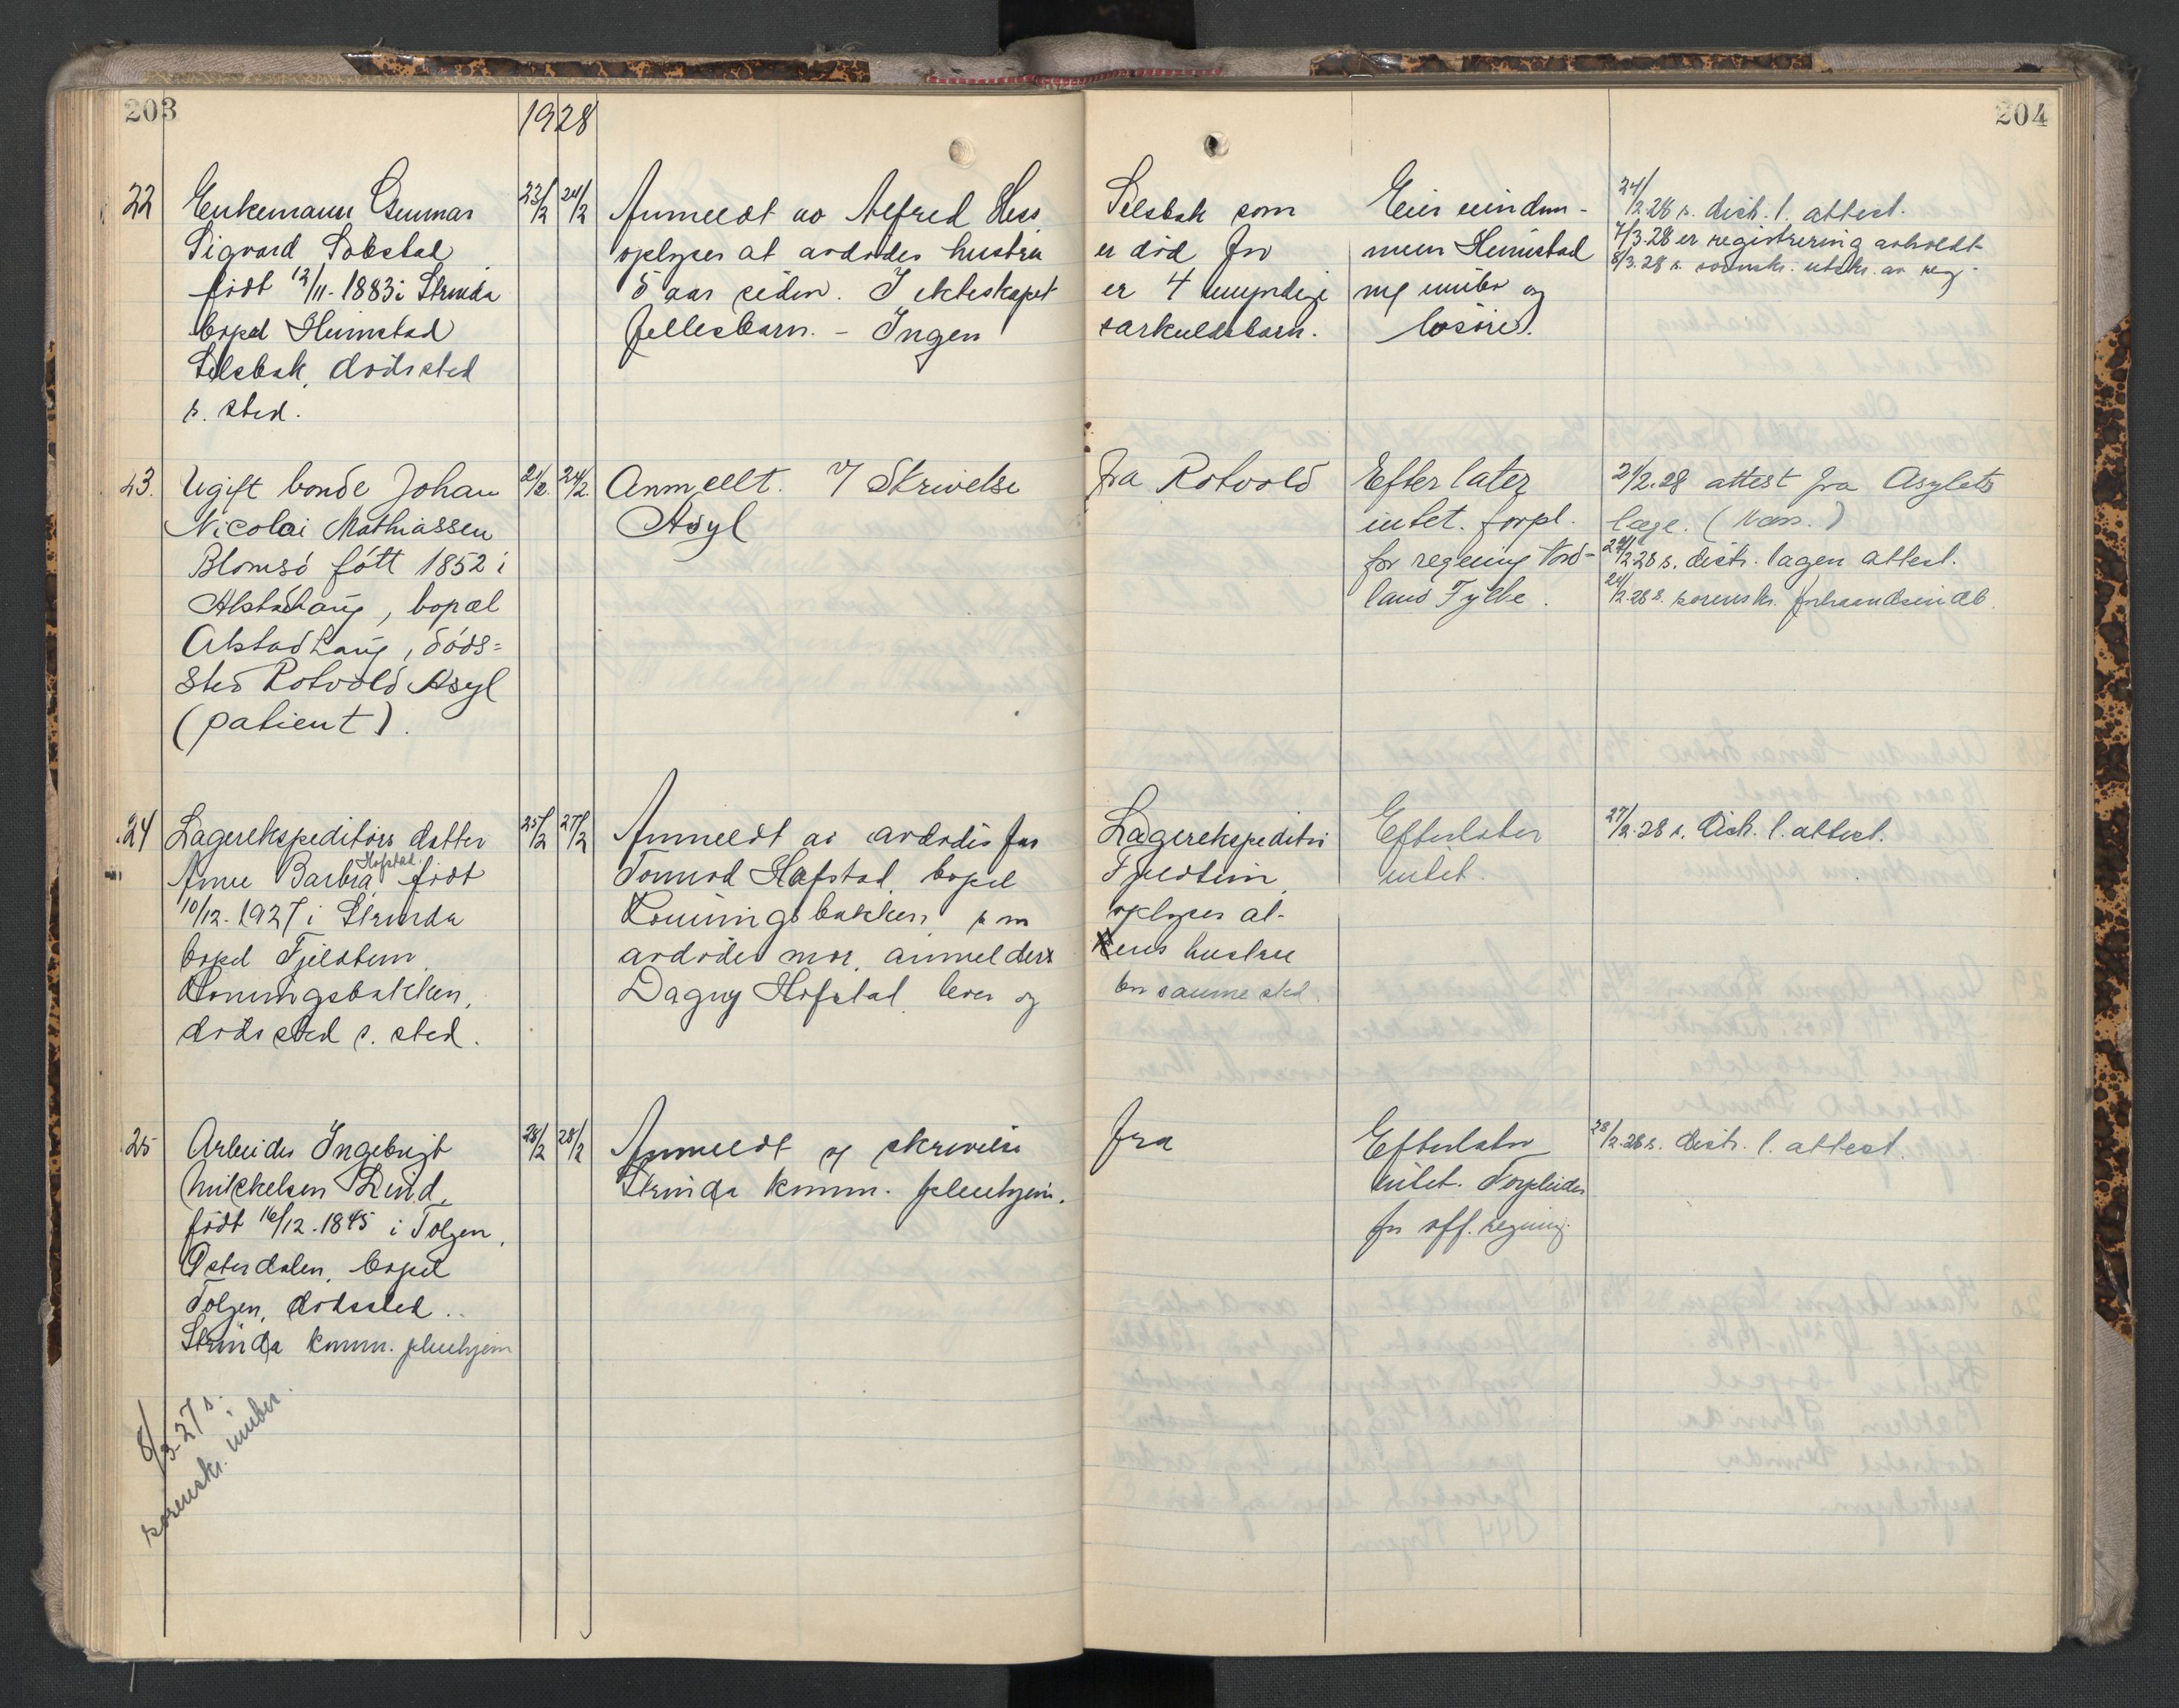 203
1928
204
22 Enkemann Gunnar 23/2 24/2 Anmeldt av Alfred Hess Selsbak som Eier eiendom- 24/2.28 s. distr. l. attest.
Sigvard Solstad oplyser at avdødes hustru er død for men Heimstad 7/3.28 er registrering avholdt
født 12/11-1883 i Strinda 5 aar siden. I ekteskapet er 4 umyndige mf innbo og 8/3.28 s. sorenskr. utskr. av reg.
bopel Heimstad fellesbarn. - Ingen særkuldsbarn. løsøre.
Selsbak, dødssted
s. sted.
23. Ugift bonde Johan 21/2. 24/2. Anmeldt. v/ Skrivelse fra Rotvold Efterlater 21/2.28 attest fra Asylets
Nicolai Mathiassen Asyl intet. forpl. læge.
Blomsö fött 1852 i for regning Nord- 24/2 28 s. distr. lægen attest.
Alstahaug, bopæl land Fylke. 24/2.28 s. sorenskr.
Alstadhaug, döds=
sted Rotvold Asyl
(patient).
24 Lagerekspeditørs datter 25/2 27/2 Anmeldt av avdødes far Lagerekspeditør Efterlater 27/2.28 s. distr. l. attest.
Hofstad
Anne Barbra født Tormod Hofstad, bopel Fjeldheim, intet.
10/12-1927 i Strinda som oplyser at
bopel Fjeldheim, avdødes mor, anmelders hustru
Dagny Hofstad lever og bor samme sted.
dødssted s. sted.
25 Arbeider Ingebrigt 28/2 28/2 Anmeldt v/ skrivelse fra Efterlater 28/2.28 s. distr. l. attest.
Mikkelsen Lind, Strinda komm. pleiehjem. intet. Forpleides
født 16/12-1845 i Tolgen, for off. regning.
Østerdalen, bopel
Tolgen, dødssted
Strinda komm. pleiehjem
8/3-27 s.
sorenskr. innber.